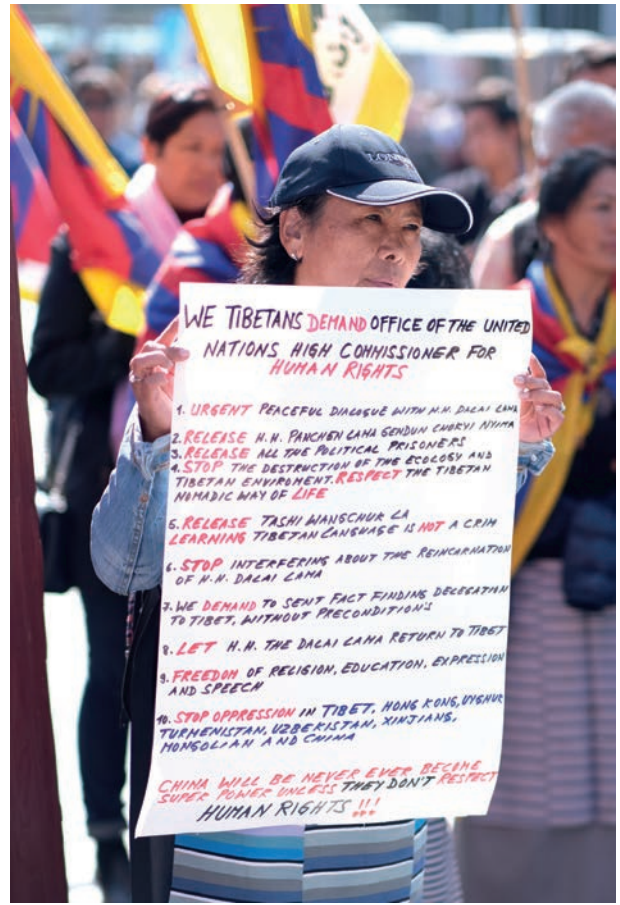 LONDON
WE TIBETANS DEMAND OFFICE OF THE UNITED
NATIONS HIGH COMMISSIONER FOR
HUMAN RIGHTS
1. URGENT PEACEFUL DIALOGUE WITH H.H. DALAI LAMA
2. RELEASE H.H. PANCHEN LAMA GENDUN CHOKYI NYIMA
3. RELEASE ALL THE POLITICAL PRISONERS
4. STOP THE DESTRUCTION OF THE ECOLOGY AND
TIBETAN ENVIROMENT. RESPECT THE TIBETAN
NOMADIC WAY OF LIFE
5. RELEASE TASHI WANGCHUK LA
LEARNING TIBETAN LANGUAGE IS NOT A CRIM
6. STOP INTERFERING ABOUT THE REINCARNATION
OF H.H. DALAI LAMA
7. WE DEMAND TO SENT FACT FINDING DELEGATION
TO TIBET, WITHOUT PRECONDITION'S
8. LET H.H. THE DALAI LAMA RETURN TO TIBET
9. FREEDOM OF RELIGION, EDUCATION, EXPRESSION
AND SPEECH
10. STOP OPPRESSION IN TIBET, HONG KONG, UYGHUR
TURMENISTAN, UZBEKISTAN, XINJIANG,
MONGOLIAN AND CHINA
CHINA WILL BE NEVER EVER BECOME
SUPER POWER UNLESS THEY DON'T RESPECT
HUMAN RIGHTS !!!